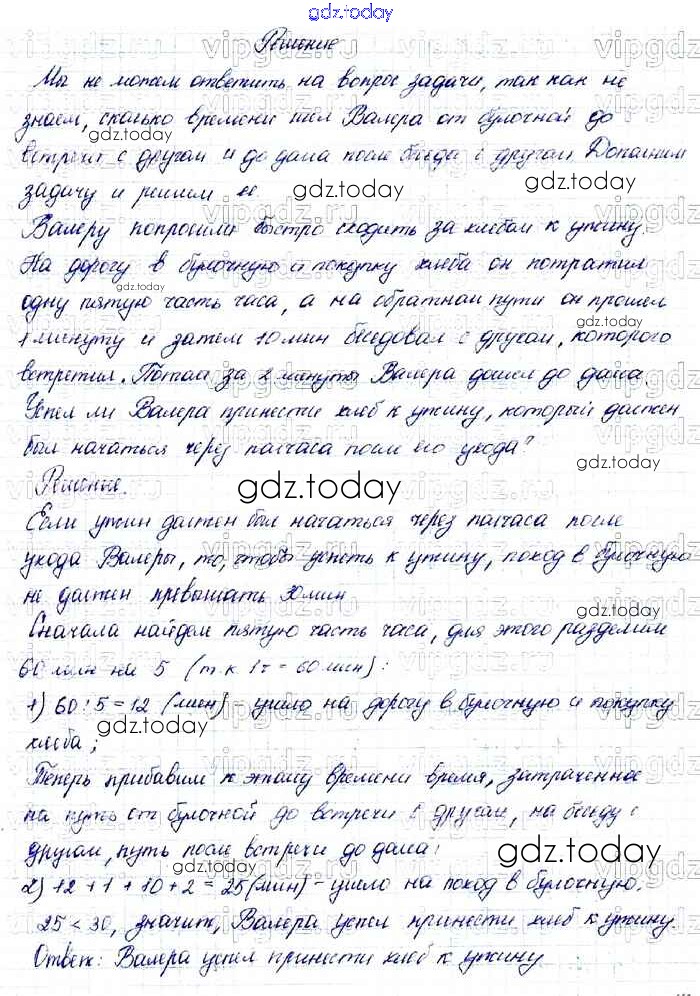 gdz.today
Решение
Мы не можем ответить на вопрос задачи, так как не
знаем, сколько времени шел Валера от булочной до
встречи с другом и до дома после беседы с другом. Дополним
задачу и решим ее
Валеру попросили быстро сходить за хлебом к ужину.
На дорогу в булочную и покупку хлеба он потратил
одну пятую часть часа, а на обратном пути он прошел
1 минуту и затем 10 мин беседовал с другом, которого
встретил. Потом за 2 минуты Валера дошел до дома.
Успел ли Валера принести хлеб к ужину, который должен
был начаться через полчаса после его ухода?
Решение.
Если ужин должен был начаться через полчаса после
ухода Валеры, то, чтобы успеть к ужину, поход в булочную
не должен превышать 30 мин
Сначала найдем пятую часть часа, для этого разделим
60 мин на 5 (т.к. 1ч = 60 мин):
1) 60 : 5 = 12 (мин) - ушло на дорогу в булочную и покупку
хлеба;
Теперь прибавим к этому времени время, затраченное
на путь от булочной до встречи с другом, на беседу с
другом, путь после встречи до дома:
2) 12 + 1 + 10 + 2 = 25 (мин) - ушло на поход в булочную.
25 < 30, значит, Валера успел принести хлеб к ужину.
Ответ: Валера успел принести хлеб к ужину